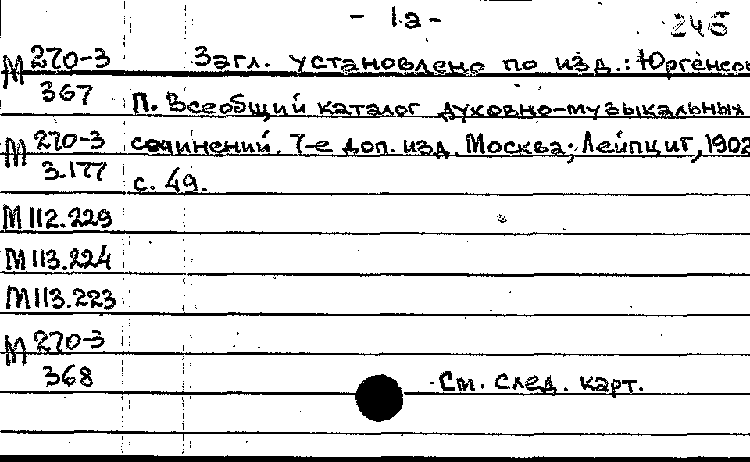 - 1а - 245
М 270-3 Загл. установлено по изд.: Юргенсон
367 П. Всеобщий каталог духовно-музыкальных
М 270-3 сочинений. 7-е доп. изд. Москва; Лейпциг, 1902
3.177 с. 49.
М 112.229
М 113.224
М 113.223
М 270-3
368 См. след. карт.